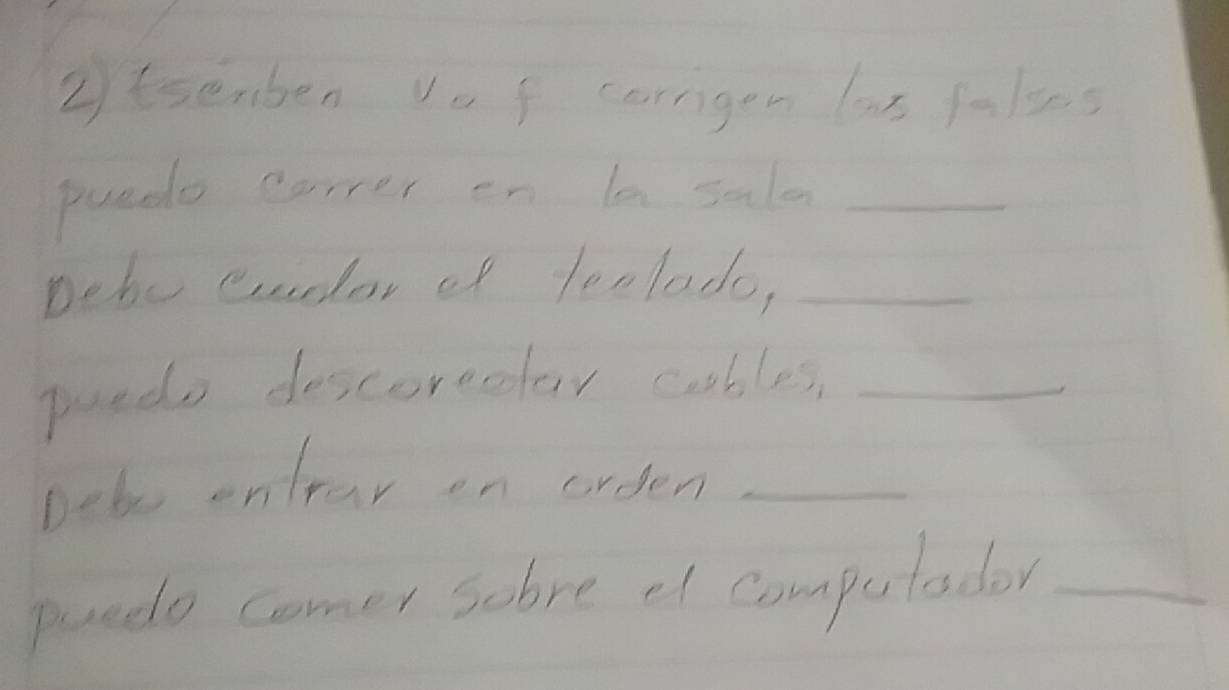 2) Escriben V o f corrigen las falsas
puedo correr en la sala ____
Debo cuidar el teclado, ____
puedo desconectar cables, ____
Debo entrar en orden ____
puedo comer sobre el computador ____